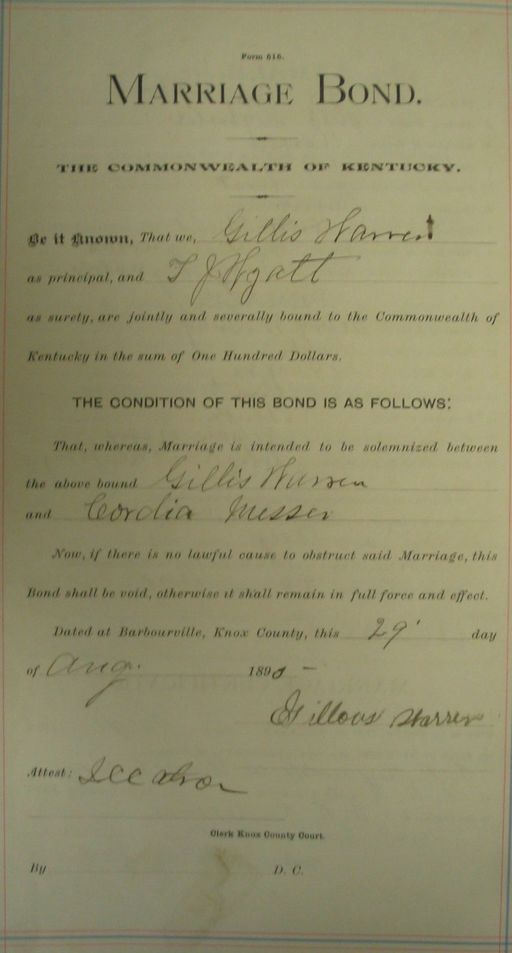 Form 516.
MARRIAGE BOND.
THE COMMONWEALTH OF KENTUCKY.
Be it Known, That we, Gillis Warren
as principal, and T J Wyatt
as surety, are jointly and severally bound to the Commonwealth of
Kentucky in the sum of One Hundred Dollars.
THE CONDITION OF THIS BOND IS AS FOLLOWS:
That, whereas, Marriage is intended to be solemnized between
the above bound Gillis Warren
and Cordia Messer
Now, if there is no lawful cause to obstruct said Marriage, this
Bond shall be void, otherwise it shall remain in full force and effect.
Dated at Barbourville, Knox County, this 29 day
of Aug. 189
Warren
Attest:
Clerk Knox County Court.
By D. C.